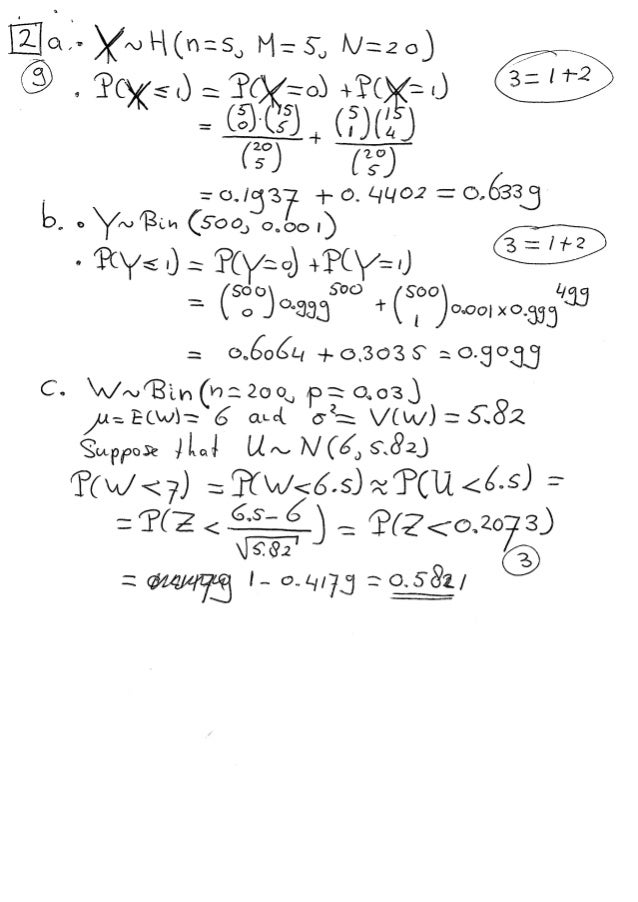 2 a. • X ~ H(n=5, M=5, N=20)
9 • P(X ≤ 1) = P(X=0) + P(X=1) 3 = 1+2
= (5 0)·(15 5) / (20 5) + (5 1)(15 4) / (20 5)
= 0.1937 + 0.4402 = 0.6339
b. • Y ~ Bin (500, 0.001)
• P(Y ≤ 1) = P(Y=0) + P(Y=1) 3 = 1+2
= (500 0) 0.999^500 + (500 1) 0.001 × 0.999^499
= 0.6064 + 0.3035 = 0.9099
c. W ~ Bin (n=200, p=0.03)
μ = E(W) = 6 and σ² = V(W) = 5.82
Suppose that U ~ N(6, 5.82)
P(W < 7) = P(W < 6.5) ≈ P(U < 6.5) =
= P(Z < (6.5 - 6) / √5.82) = P(Z < 0.2073)
3
= 1 - 0.4179 = 0.5821